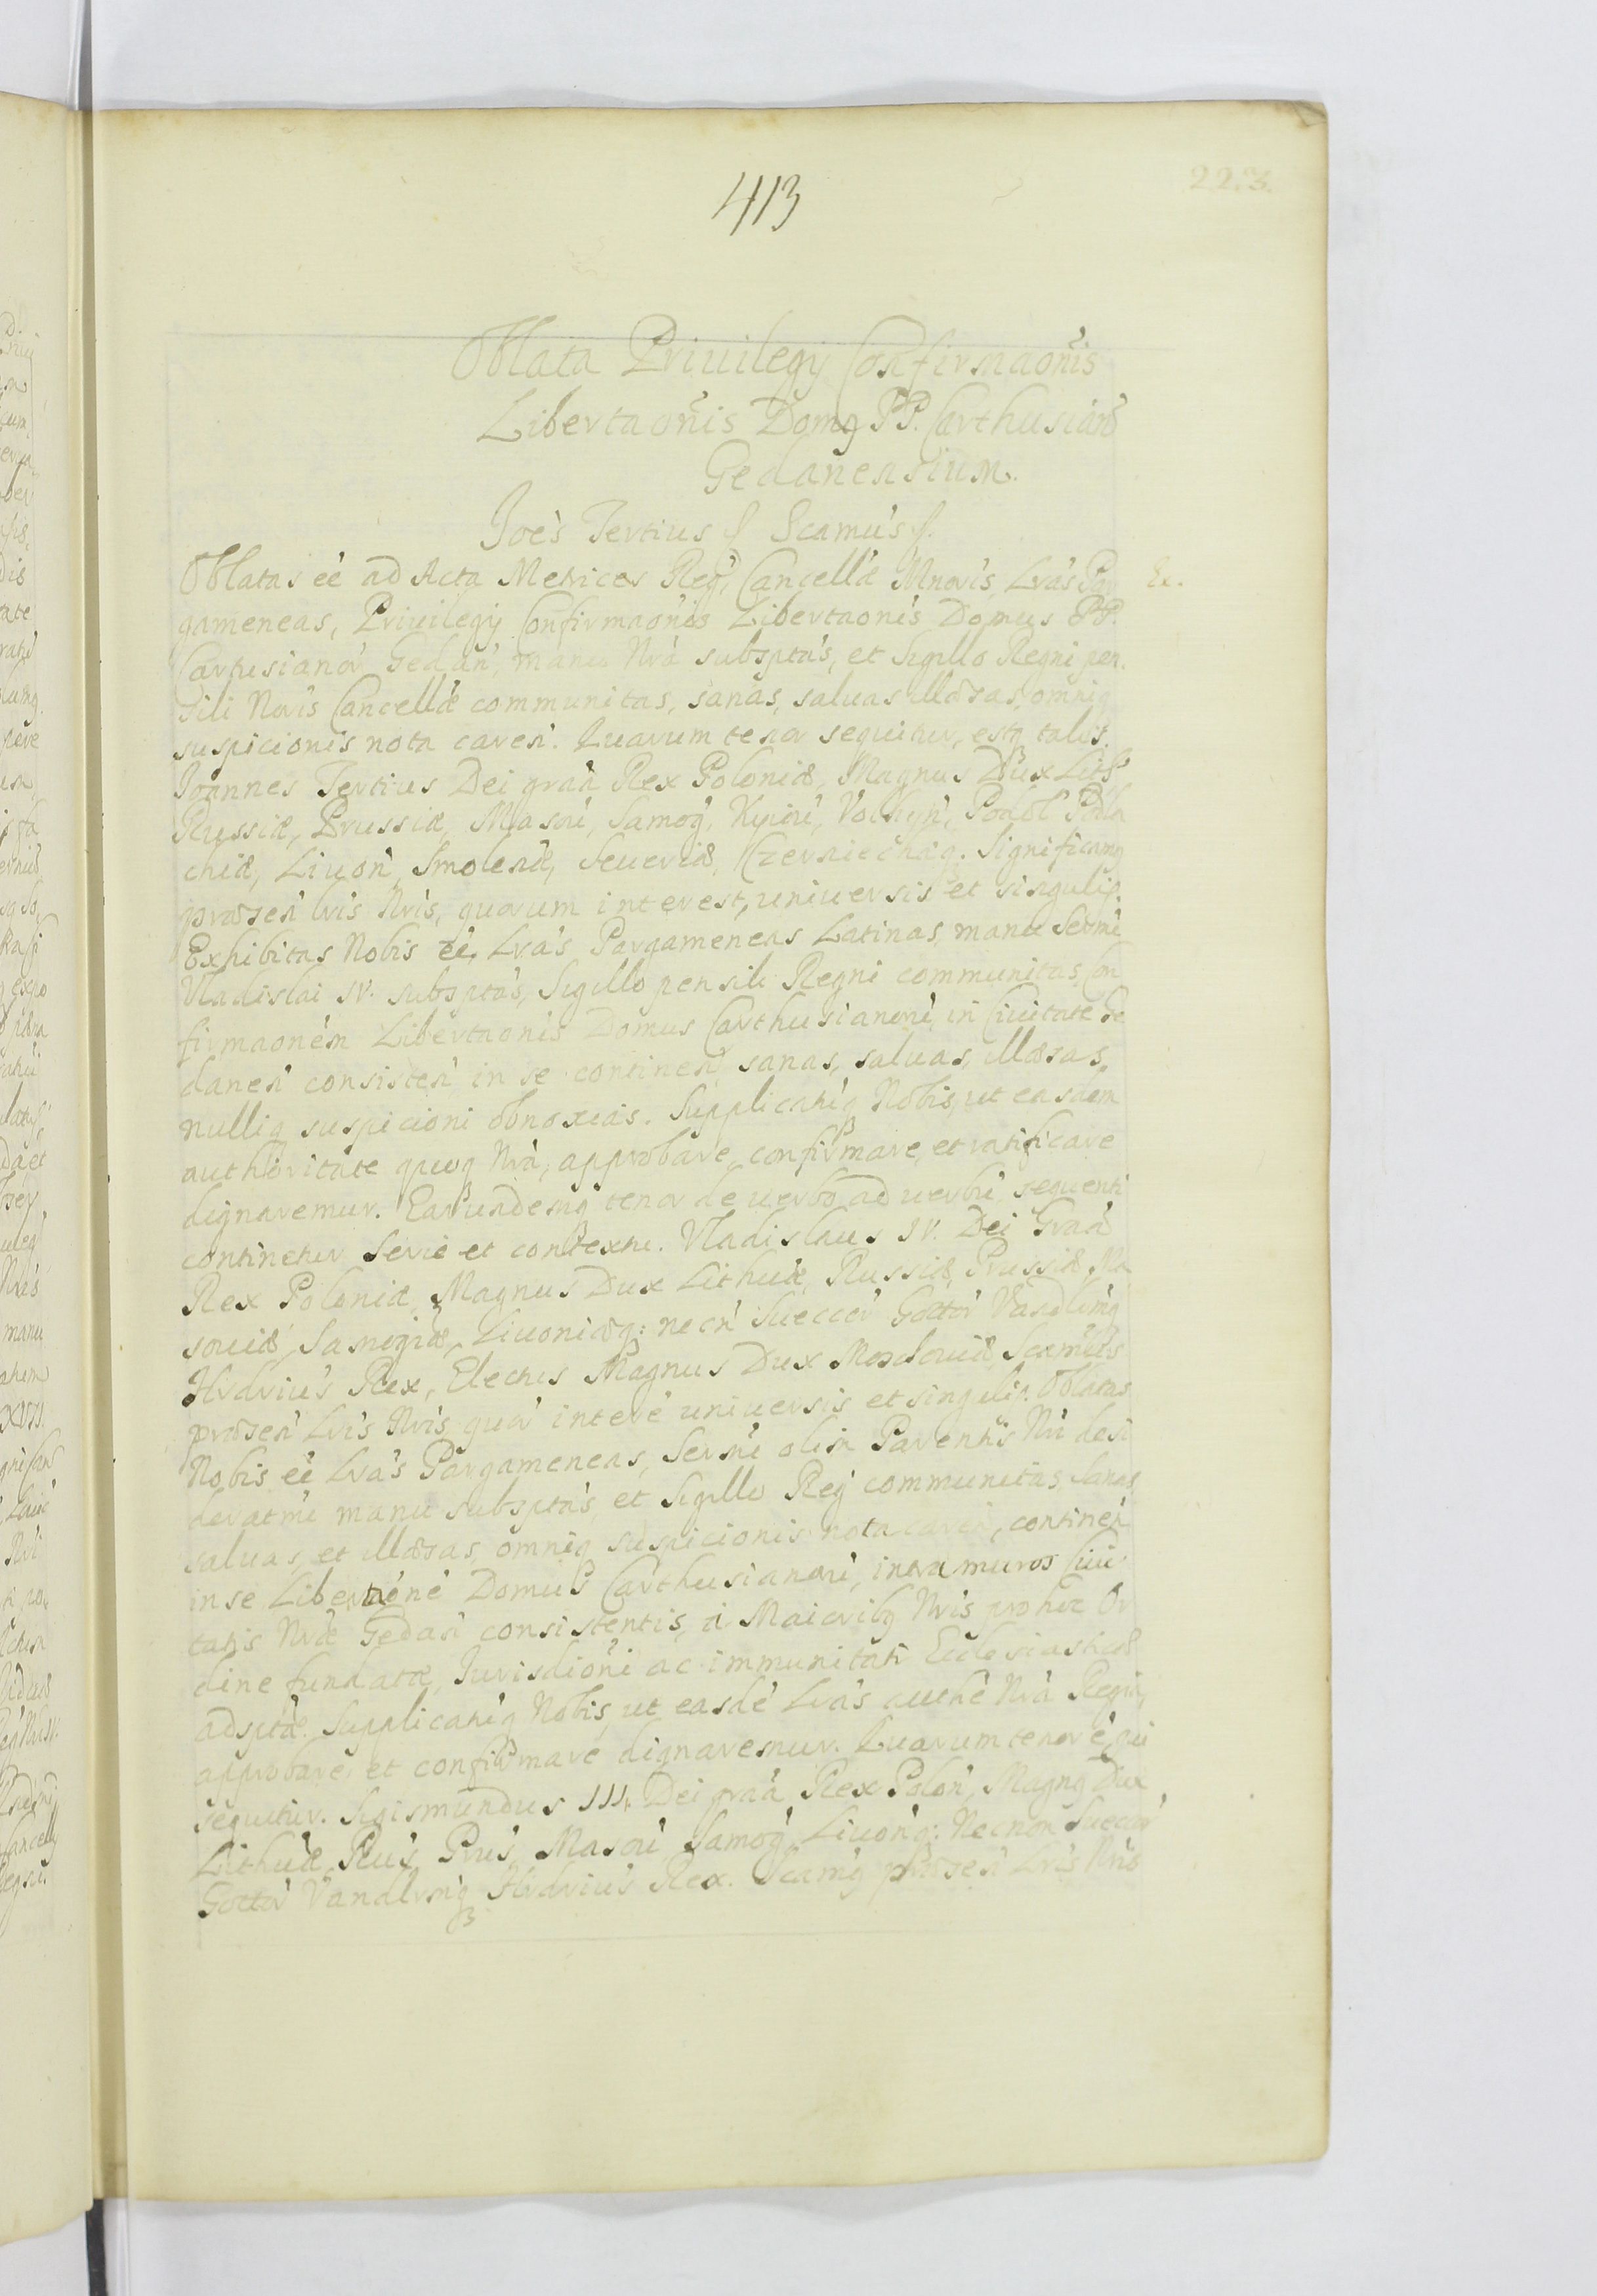 413
223.
Oblata Priuilegij Confirmaonis
Libertaonis Domq PP. Carthusian
Gedanensium.
Joés Tertius S Scamus S.
Oblatas eé ad Acta Metrices Reg, Cancellæ Mnoris Lrás Par
gameneas, Priuilegij Confirmaonis Libertaonis Domus PP.
Cartusianor Gedan, manu Nrá subsptás, et Sigillo Regni pen
sili Noris Cancellæ communitas, sanas, saluas illæsas, omniq
suspicionis nota caren. Quarum tenor sequitur, estq talis.
Joannes Tertius Dei graá Rex Poloniæ, Magnus Dux Lith
Russiæ, Prussiæ, Masou, Samog, Kyiou, Volhyn, Podol Podla
chiæ, Liuon, Smolensæ, Seueriæ, Czerniechoq. Significamq
præsen lris Nris, quorum interest, uniuersis et singulis.
Exhibitas Nobis eé Lrás Pargameneas Latinas, manu Sermi
Vladislai IV. subsptás, Sigillo pensili Regni communitas, Con
firmaoném Libertaonis Domus Carthusianoru in Ciuitate Ge
danen consisten in se continen, sanas, saluas, illæsas,
nulliq suspicioni obnoxias. Supplicatuq Nobis, ut easdem
authoritate quoq Nrá, approbare, confirmare, et ratificare
dignaremur. Earundemq tenor de uerbo ad uerbu sequenti
continetur serie et contextu. Vladislaus IV. Dei Graá
Rex Poloniæ, Magnus Dux Lithuæ, Russiæ, Prussiæ Ma
souiæ Samogiæ, Liuoniæq: necn Sueccor Gottor Vandlumq
Hrdrius Rex, Electus Magnus Dux Moschouiæ, Scamus
præsen Lris Nris quor interé uniuersis et singulis. Oblatas
Nobis eé Lrás Pargameneas, Sermi olim Parentis Nri desi
deratmi manu subsptás, et Sigillo Reg communitas Sanas
saluas, et illæsas, omniq suspicionis nota caren, continen
in se Libertaoné Domus Carthusianoru, intra muros Ciui
tatis Nræ Gedan consistentis, á Maioribq Nris pro hoc Or
dine fundatæ, Jurisdioni ac immunitati Ecclesiasticæ
adsptæ. Supplicatuq Nobis, ut easdé Lrás authé Nrá Regia,
approbare, et confirmare dignaremur. Quarum tenor é, qui
sequitur. Sigismundus III. Dei graá Rex Polon, Magnq Dux
Lithuæ, Rus Prus, Masou Samog, Liuonq: Necnon Sueccor
Gottor Vandlrmq Hrdrius Rex. Scamq præsen Lris Nris